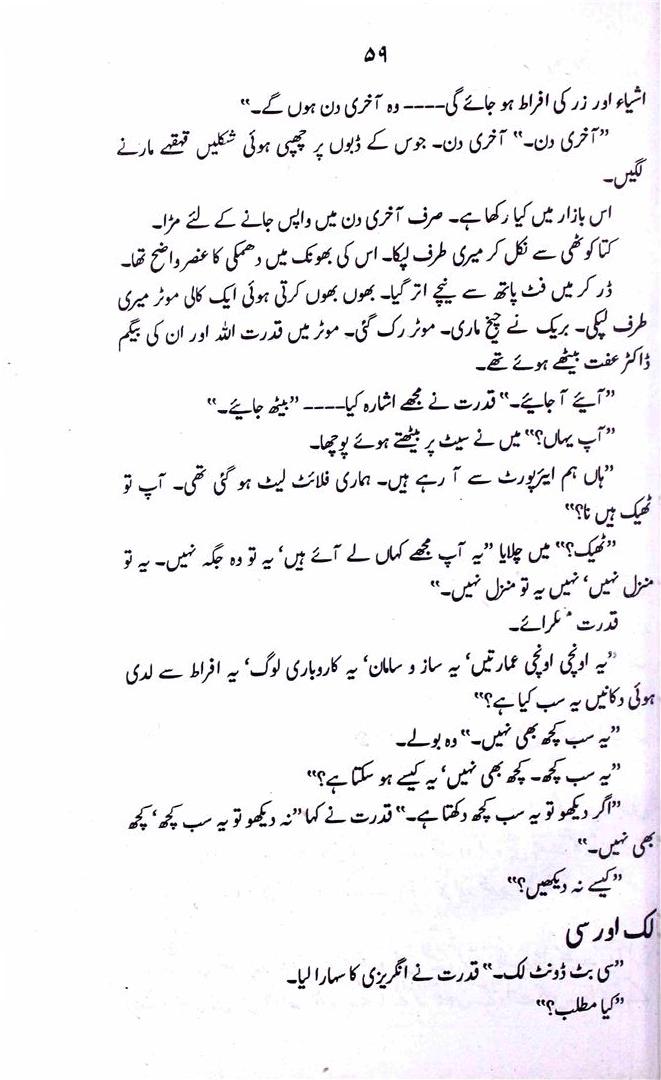 ۵۹
اشیاء اور زر کی افراط ہو جائے گی---- وہ آخری دن ہوں گے۔“
”آخری دن۔“ آخری دن۔ جوس کے ڈبوں پر چھپی ہوئی شکلیں قہقہے مارنے
لگیں۔
اس بازار میں کیا رکھا ہے۔ صرف آخری دن میں واپس جانے کے لئے مڑا۔
کتا کوٹھی سے نکل کر میری طرف لپکا۔ اس کی بھونک میں دھمکی کا عنصر واضح تھا۔
ڈر کر میں فٹ پاتھ سے نیچے اتر گیا۔ بھوں بھوں کرتی ہوئی ایک کالی موٹر میری
طرف لپکی۔ بریک نے چیخ ماری۔ موٹر رک گئی۔ موٹر میں قدرت اللہ اور ان کی بیگم
ڈاکٹر عفت بیٹھے ہوئے تھے۔
”آیئے آ جایئے۔“ قدرت نے مجھے اشارہ کیا---- ”بیٹھ جایئے۔“
”آپ یہاں؟“ میں نے سیٹ پر بیٹھتے ہوئے پوچھا۔
”ہاں ہم ایئرپورٹ سے آ رہے ہیں۔ ہماری فلائٹ لیٹ ہو گئی تھی۔ آپ تو
ٹھیک ہیں نا؟“
”ٹھیک؟“ میں چلایا ”یہ آپ مجھے کہاں لے آئے ہیں‘ یہ تو وہ جگہ نہیں۔ یہ تو
منزل نہیں‘ نہیں یہ تو منزل نہیں۔“
قدرت
”یہ اونچی اونچی عمارتیں‘ یہ ساز و سامان‘ یہ کاروباری لوگ‘ یہ افراط سے لدی
ہوئی دکانیں یہ سب کیا ہے؟“
”یہ سب کچھ بھی نہیں۔“ وہ بولے۔
”یہ سب کچھ۔ کچھ بھی نہیں‘ یہ کیسے ہو سکتا ہے؟“
”اگر دیکھو تو یہ سب کچھ دکھتا ہے۔“ قدرت نے کہا ”نہ دیکھو تو یہ سب کچھ‘ کچھ
بھی نہیں۔“
”کیسے نہ دیکھیں؟“
لک اور سی
”سی بٹ ڈونٹ لک۔“ قدرت نے انگریزی کا سہارا لیا۔
”کیا مطلب؟“